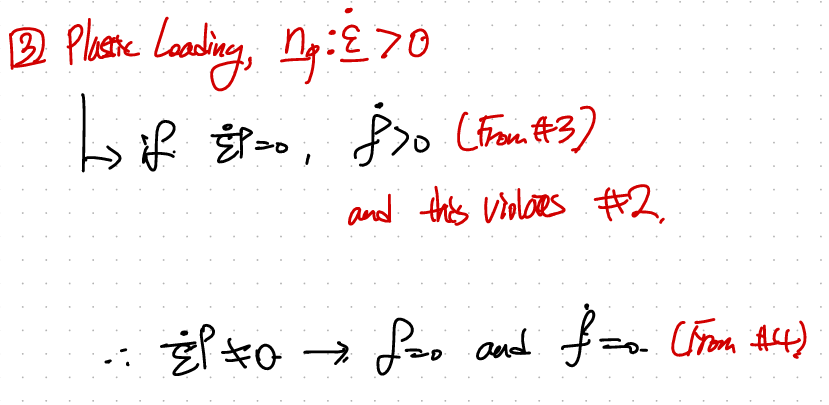 ③ Plastic Loading, n_φ : ε̇ > 0
↳ if ε̇ᵖ=0, ḟ>0 (From #3)
and this violates #2.
∴ ε̇ᵖ ≠ 0 → f=0 and ḟ=0. (From #4)